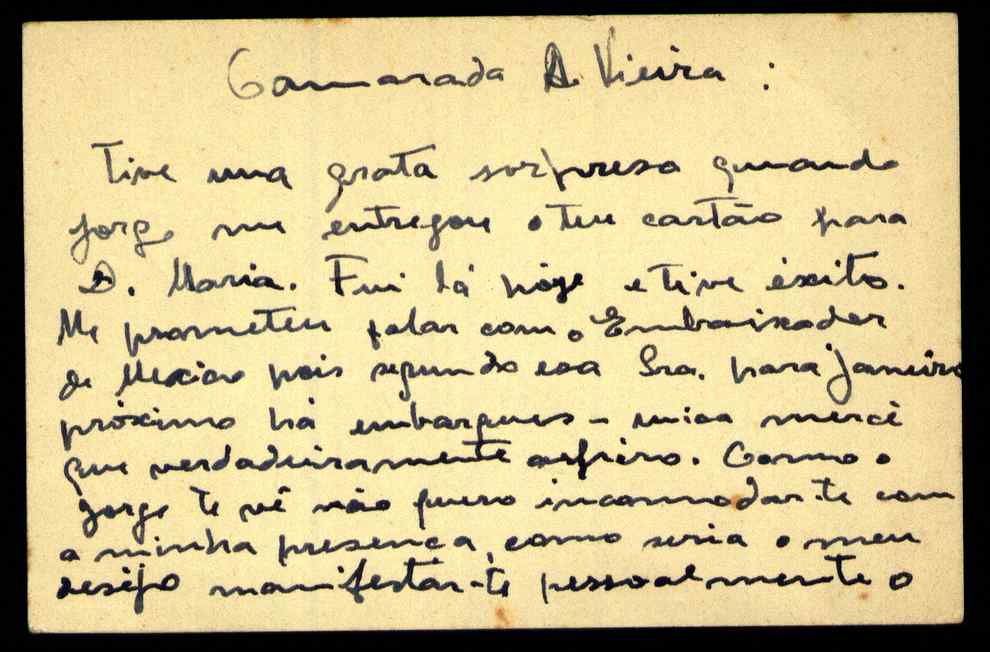 Camarada A. Vieira :
Tive uma grata sorpresa quando
Jorge me entregou o teu cartão para
D. Maria. Fui lá hoje e tive éxito.
Me prometeu falar com o Embaixador
de Mexico pois segundo essa Sra. para janeiro
próximo há embarques - unica mercê
que verdadeiramente aspiro. Como o
Jorge te vê não quero incommodar-te com
a minha presença, como seria o meu
desejo manifestar-te pessoalmente o